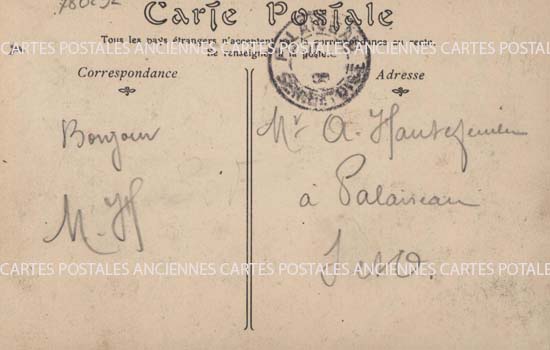 78092
Carte Postale
Tous les pays étrangers n'acceptent pas la correspondance au recto.
Se renseigner à la poste.
Correspondance
Adresse
PALAISEAU
SEINE-ET-OISE
CARTES POSTALES ANCIENNES CARTES POSTALES ANCIENNES CARTES POSTALES
Bonjour
M. H
Mr A. Hautefeuille
à Palaiseau
S et O.
CARTES POSTALES ANCIENNES CARTES POSTALES ANCIENNES CARTES POSTALES